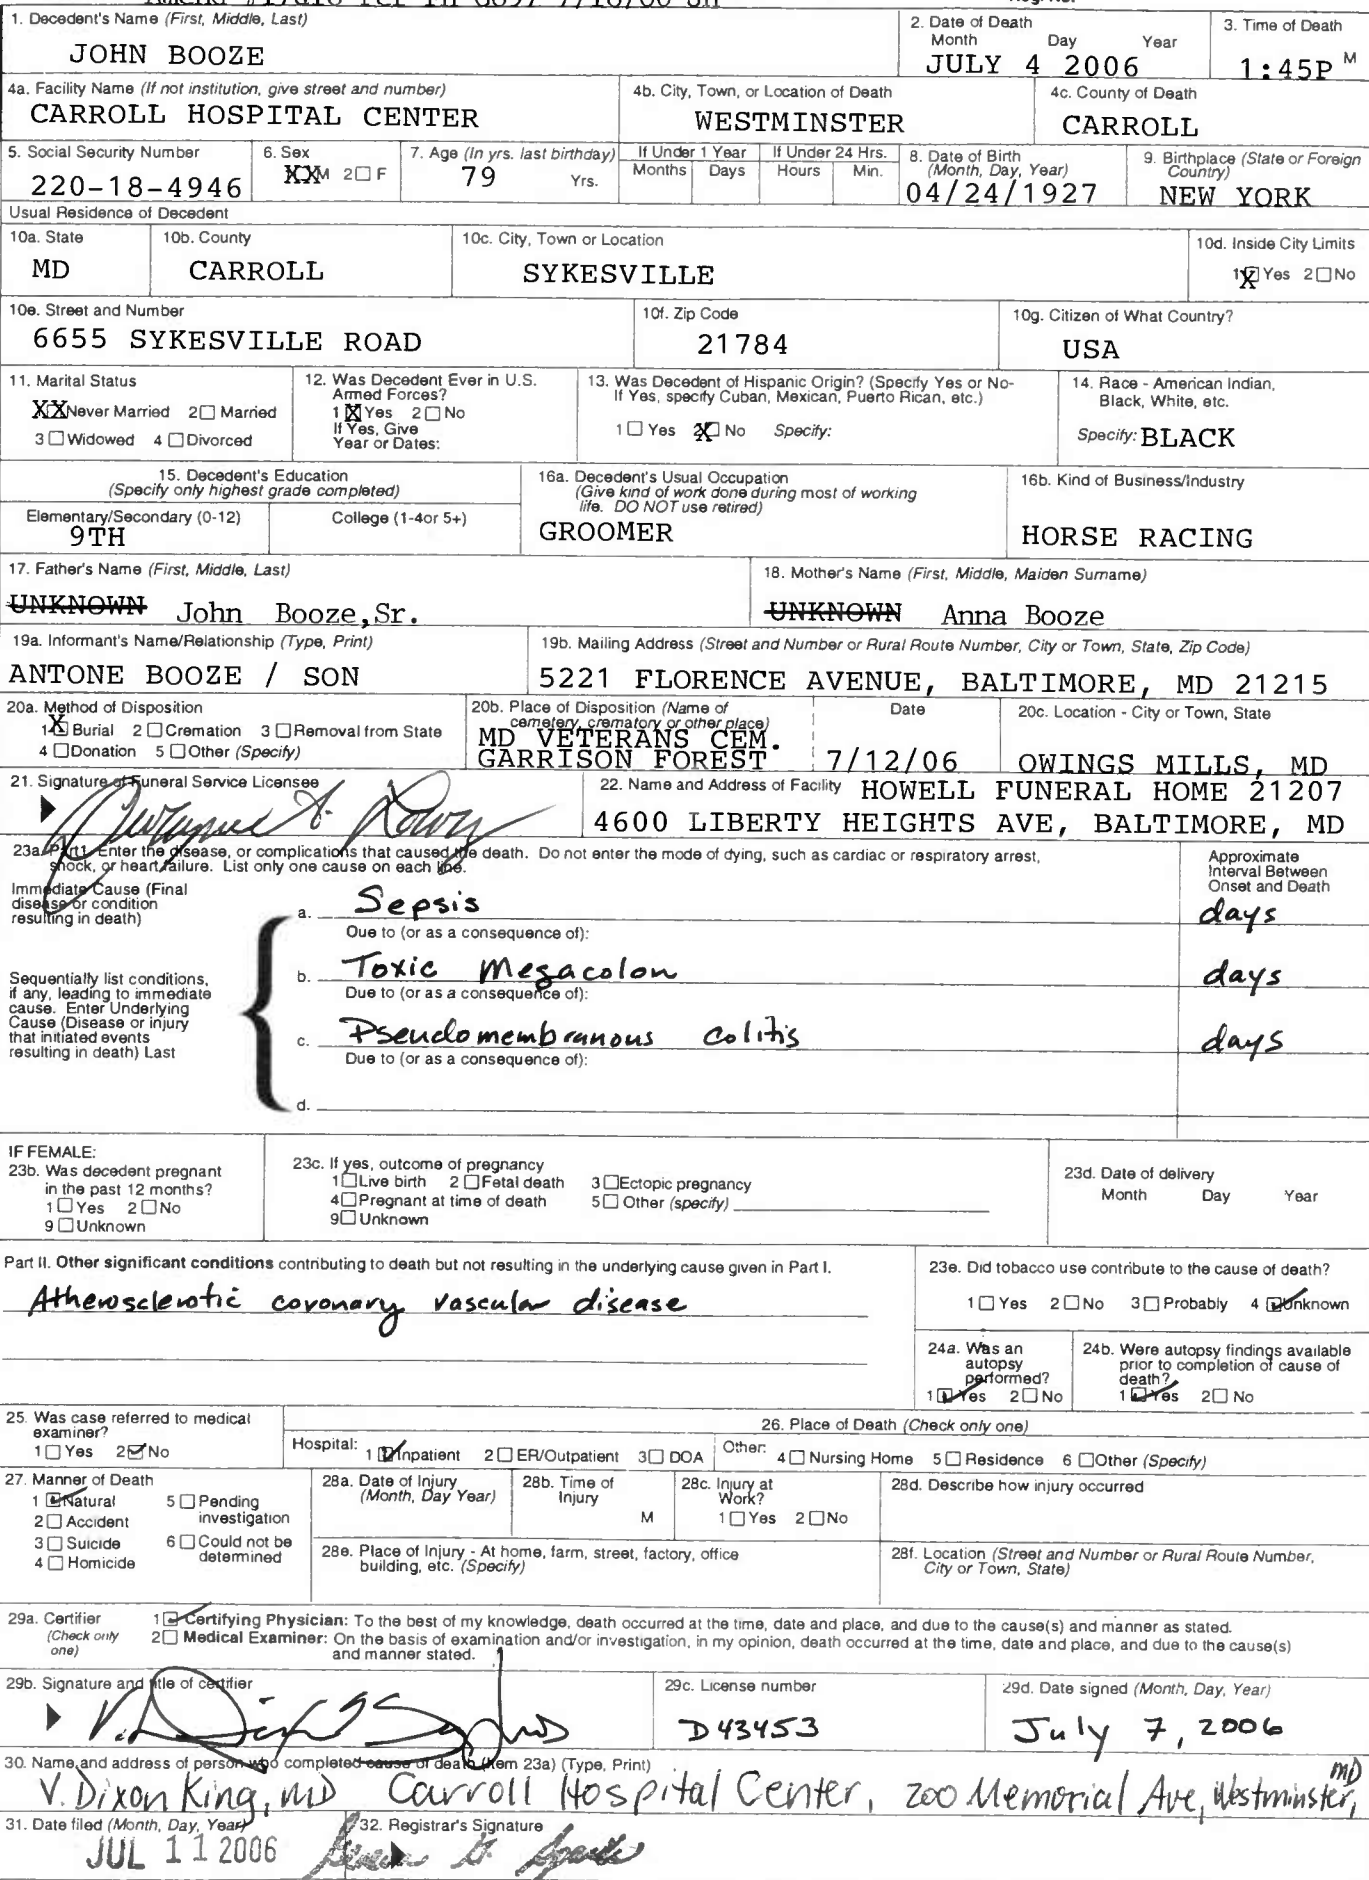 1. Decedent's Name (First, Middle, Last)
JOHN BOOZE
2. Date of Death
Month Day Year
JULY 4 2006
3. Time of Death
1:45P M
4a. Facility Name (If not institution, give street and number)
CARROLL HOSPITAL CENTER
4b. City, Town, or Location of Death
WESTMINSTER
4c. County of Death
CARROLL
5. Social Security Number
220-18-4946
6. Sex
XXM 2☐ F
7. Age (In yrs. last birthday)
79 Yrs.
If Under 1 Year
Months Days
If Under 24 Hrs.
Hours Min.
8. Date of Birth
(Month, Day, Year)
04/24/1927
9. Birthplace (State or Foreign
Country)
NEW YORK
Usual Residence of Decedent
10a. State
MD
10b. County
CARROLL
10c. City, Town or Location
SYKESVILLE
10d. Inside City Limits
1☒ Yes 2☐ No
10e. Street and Number
6655 SYKESVILLE ROAD
10f. Zip Code
21784
10g. Citizen of What Country?
USA
11. Marital Status
XXNever Married 2☐ Married
3☐ Widowed 4☐ Divorced
12. Was Decedent Ever in U.S.
Armed Forces?
1☒ Yes 2☐ No
If Yes, Give
Year or Dates:
13. Was Decedent of Hispanic Origin? (Specify Yes or No-
If Yes, specify Cuban, Mexican, Puerto Rican, etc.)
1☐ Yes 2☒ No Specify:
14. Race - American Indian,
Black, White, etc.
Specify: BLACK
15. Decedent's Education
(Specify only highest grade completed)
Elementary/Secondary (0-12)
9TH
College (1-4or 5+)
16a. Decedent's Usual Occupation
(Give kind of work done during most of working
life. DO NOT use retired)
GROOMER
16b. Kind of Business/Industry
HORSE RACING
17. Father's Name (First, Middle, Last)
UNKNOWN John Booze,Sr.
18. Mother's Name (First, Middle, Maiden Surname)
UNKNOWN Anna Booze
19a. Informant's Name/Relationship (Type, Print)
ANTONE BOOZE / SON
19b. Mailing Address (Street and Number or Rural Route Number, City or Town, State, Zip Code)
5221 FLORENCE AVENUE, BALTIMORE, MD 21215
20a. Method of Disposition
1☒ Burial 2☐ Cremation 3☐ Removal from State
4☐ Donation 5☐ Other (Specify)
20b. Place of Disposition (Name of
cemetery, crematory or other place)
MD VETERANS CEM.
GARRISON FOREST
Date
7/12/06
20c. Location - City or Town, State
OWINGS MILLS, MD
21. Signature of Funeral Service Licensee
22. Name and Address of Facility HOWELL FUNERAL HOME 21207
4600 LIBERTY HEIGHTS AVE, BALTIMORE, MD
23a. Part I. Enter the disease, or complications that caused the death. Do not enter the mode of dying, such as cardiac or respiratory arrest,
shock, or heart failure. List only one cause on each line.
Approximate
Interval Between
Onset and Death
Immediate Cause (Final
disease or condition
resulting in death)
a. Sepsis days
Due to (or as a consequence of):
Sequentially list conditions,
if any, leading to immediate
cause. Enter Underlying
Cause (Disease or injury
that initiated events
resulting in death) Last
b. Toxic Megacolon days
Due to (or as a consequence of):
c. Pseudomembranous colitis days
Due to (or as a consequence of):
d.
IF FEMALE:
23b. Was decedent pregnant
in the past 12 months?
1☐ Yes 2☐ No
9☐ Unknown
23c. If yes, outcome of pregnancy
1☐ Live birth 2☐ Fetal death 3☐ Ectopic pregnancy
4☐ Pregnant at time of death 5☐ Other (specify)
9☐ Unknown
23d. Date of delivery
Month Day Year
Part II. Other significant conditions contributing to death but not resulting in the underlying cause given in Part I.
Atherosclerotic coronary vascular disease
23e. Did tobacco use contribute to the cause of death?
1☐ Yes 2☐ No 3☐ Probably 4☑ Unknown
24a. Was an
autopsy
performed?
1☑ Yes 2☐ No
24b. Were autopsy findings available
prior to completion of cause of
death?
1☑ Yes 2☐ No
25. Was case referred to medical
examiner?
1☐ Yes 2☑ No
26. Place of Death (Check only one)
Hospital: 1☑ Inpatient 2☐ ER/Outpatient 3☐ DOA
Other: 4☐ Nursing Home 5☐ Residence 6☐ Other (Specify)
27. Manner of Death
1☑ Natural 5☐ Pending
investigation
2☐ Accident
3☐ Suicide 6☐ Could not be
determined
4☐ Homicide
28a. Date of Injury
(Month, Day Year)
28b. Time of
Injury
M
28c. Injury at
Work?
1☐ Yes 2☐ No
28d. Describe how injury occurred
28e. Place of Injury - At home, farm, street, factory, office
building, etc. (Specify)
28f. Location (Street and Number or Rural Route Number,
City or Town, State)
29a. Certifier
(Check only
one)
1☑ Certifying Physician: To the best of my knowledge, death occurred at the time, date and place, and due to the cause(s) and manner as stated.
2☐ Medical Examiner: On the basis of examination and/or investigation, in my opinion, death occurred at the time, date and place, and due to the cause(s)
and manner stated.
29b. Signature and title of certifier
29c. License number
D43453
29d. Date signed (Month, Day, Year)
July 7, 2006
30. Name and address of person who completed cause of death (Item 23a) (Type, Print)
V. Dixon King, MD Carroll Hospital Center, 200 Memorial Ave, Westminster, MD
31. Date filed (Month, Day, Year)
JUL 11 2006
32. Registrar's Signature